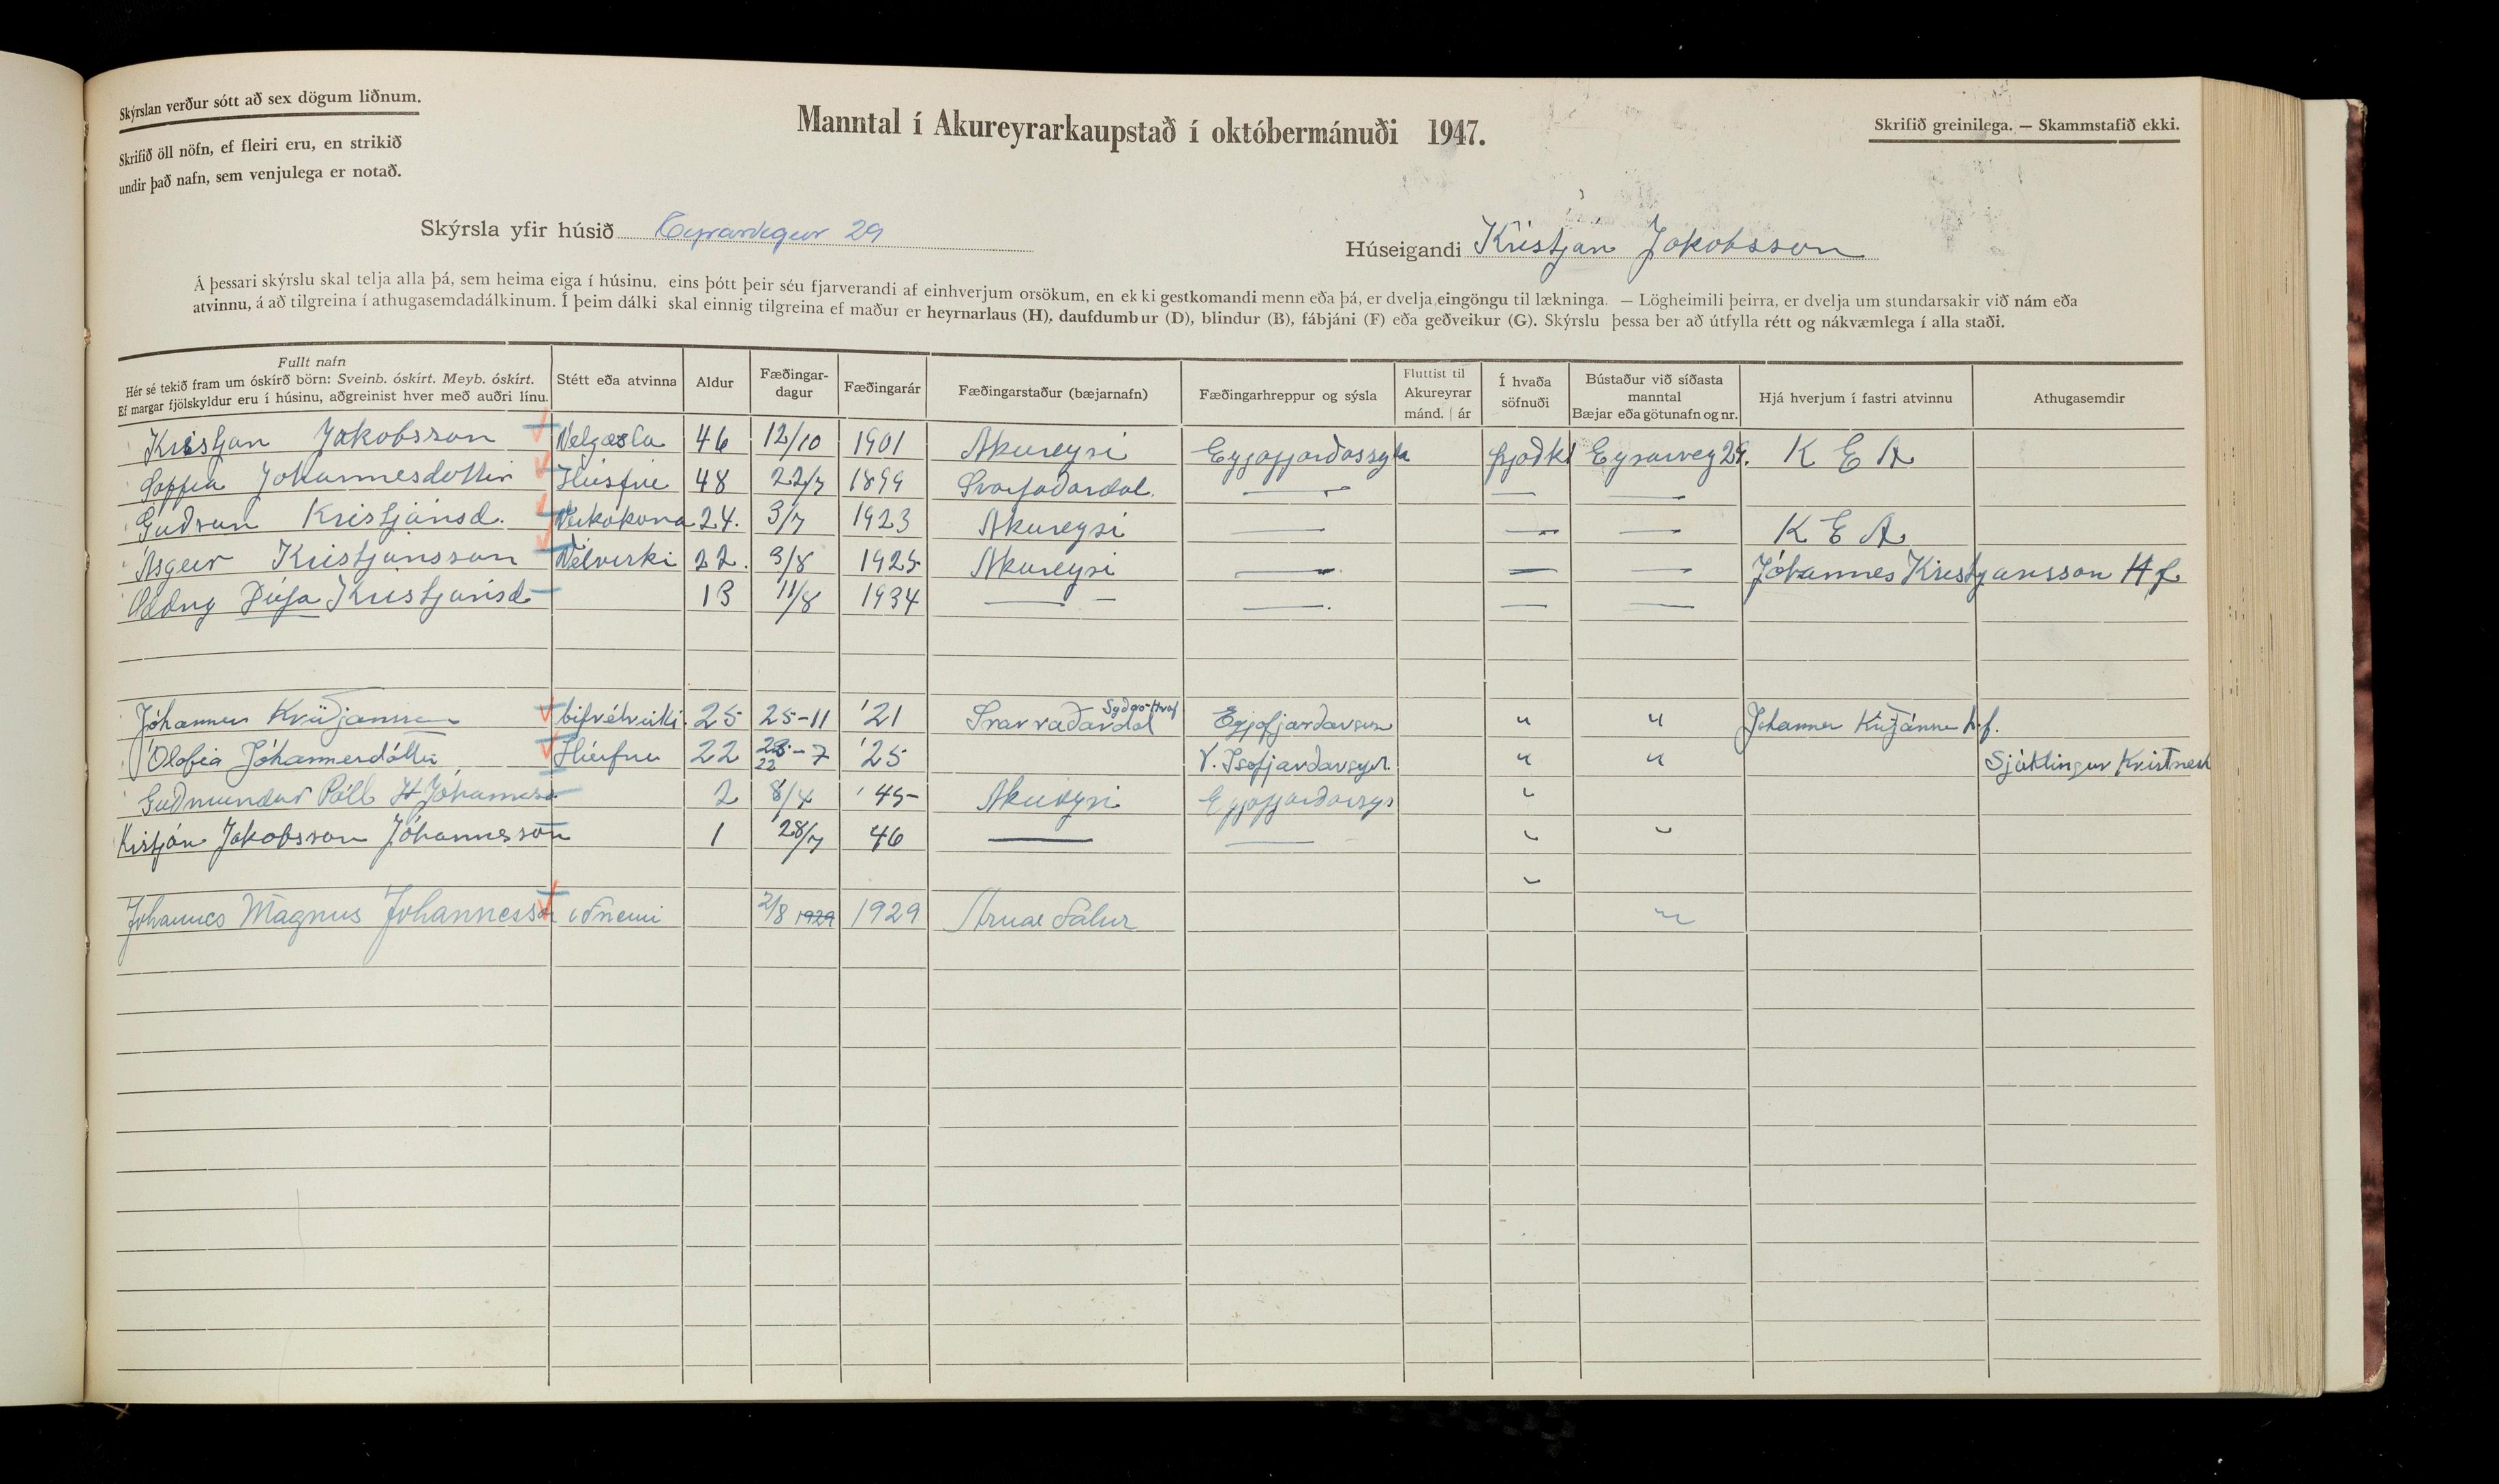 Skýrslan verður sótt að sex dögum liðnum.
Skrifið öll nöfn, ef fleiri eru, en strikið
undir það nafn, sem venjulega er notað.
Manntal í Akureyrarkaupstað í októbermánuði 1947.
Skrifið greinilega. — Skammstafið ekki.
Skýrsla yfir húsið Eyrarvegur 29
Húseigandi Kristján Jakobsson
Á þessari skýrslu skal telja alla þá, sem heima eiga í húsinu, eins þótt þeir séu fjarverandi af einhverjum orsökum, en ekki gestkomandi menn eða þá, er dvelja eingöngu til lækninga. — Lögheimili þeirra, er dvelja um stundarsakir við nám eða
atvinnu, á að tilgreina í athugasemdadálkinum. Í þeim dálki skal einnig tilgreina ef maður er heyrnarlaus (H), daufdumbur (D), blindur (B), fábjáni (F) eða geðveikur (G). Skýrslu þessa ber að útfylla rétt og nákvæmlega í alla staði.
Fullt nafn
Hér sé tekið fram um óskírð börn: Sveinb. óskírt. Meyb. óskírt.
Ef margar fjölskyldur eru í húsinu, aðgreinist hver með auðri línu.
Stétt eða atvinna
Aldur
Fæðingar-
dagur
Fæðingarár
Fæðingarstaður (bæjarnafn)
Fæðingarhreppur og sýsla
Fluttist til
Akureyrar
mánd. | ár
Í hvaða
söfnuði
Bústaður við síðasta
manntal
Bæjar eða götunafn og nr.
Hjá hverjum í fastri atvinnu
Athugasemdir
Kristjan Jakobsson Velgæsla 46 12/10 1901 Akureyri Eyjafjarðassyla þjoðkl Eyrarveg 29. K E A
Soffia Johannesdottir Húsfrú 48 22/7 1899 Svarfaðardal. — — —
Guðrun Kristjánsd. Verkakona 24. 3/7 1923 Akureyri — — — K E A
Ásgeir Kristjánsson Vélvirki 22. 3/8 1925 Akureyri — — — Jóhannes Kristjansson H f.
Oddny Dúfa Kristjánsd 13 11/8 1934 — — — — —
Jóhannes Kristjansson bifvélvirki. 25 25-11 '21 Svarvaðardal Eyjofjardarsys " "
Ólafia Jóhannesdóttir Húsfru 22 22-7 '25 V. Isafjardarsysl. " " Sjúklingur Kristnesh
Guðmundur Páll H Jóhanness 2 8/4 '45 Akureyri Eyjafjarðarsys "
Kistján Jakobsson Jóhannesson 1 28/7 46 — — " "
"
Johannes Magnus Johannesson iðnemi 2/8 1929 1929 "